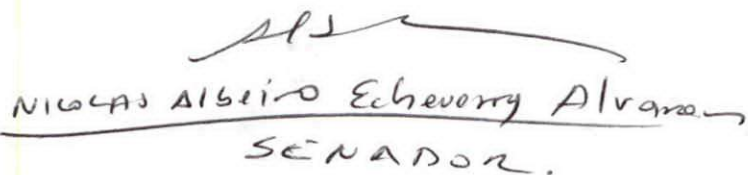 NICOLAS Albeiro Echeverry Alvaran
SENADOR.